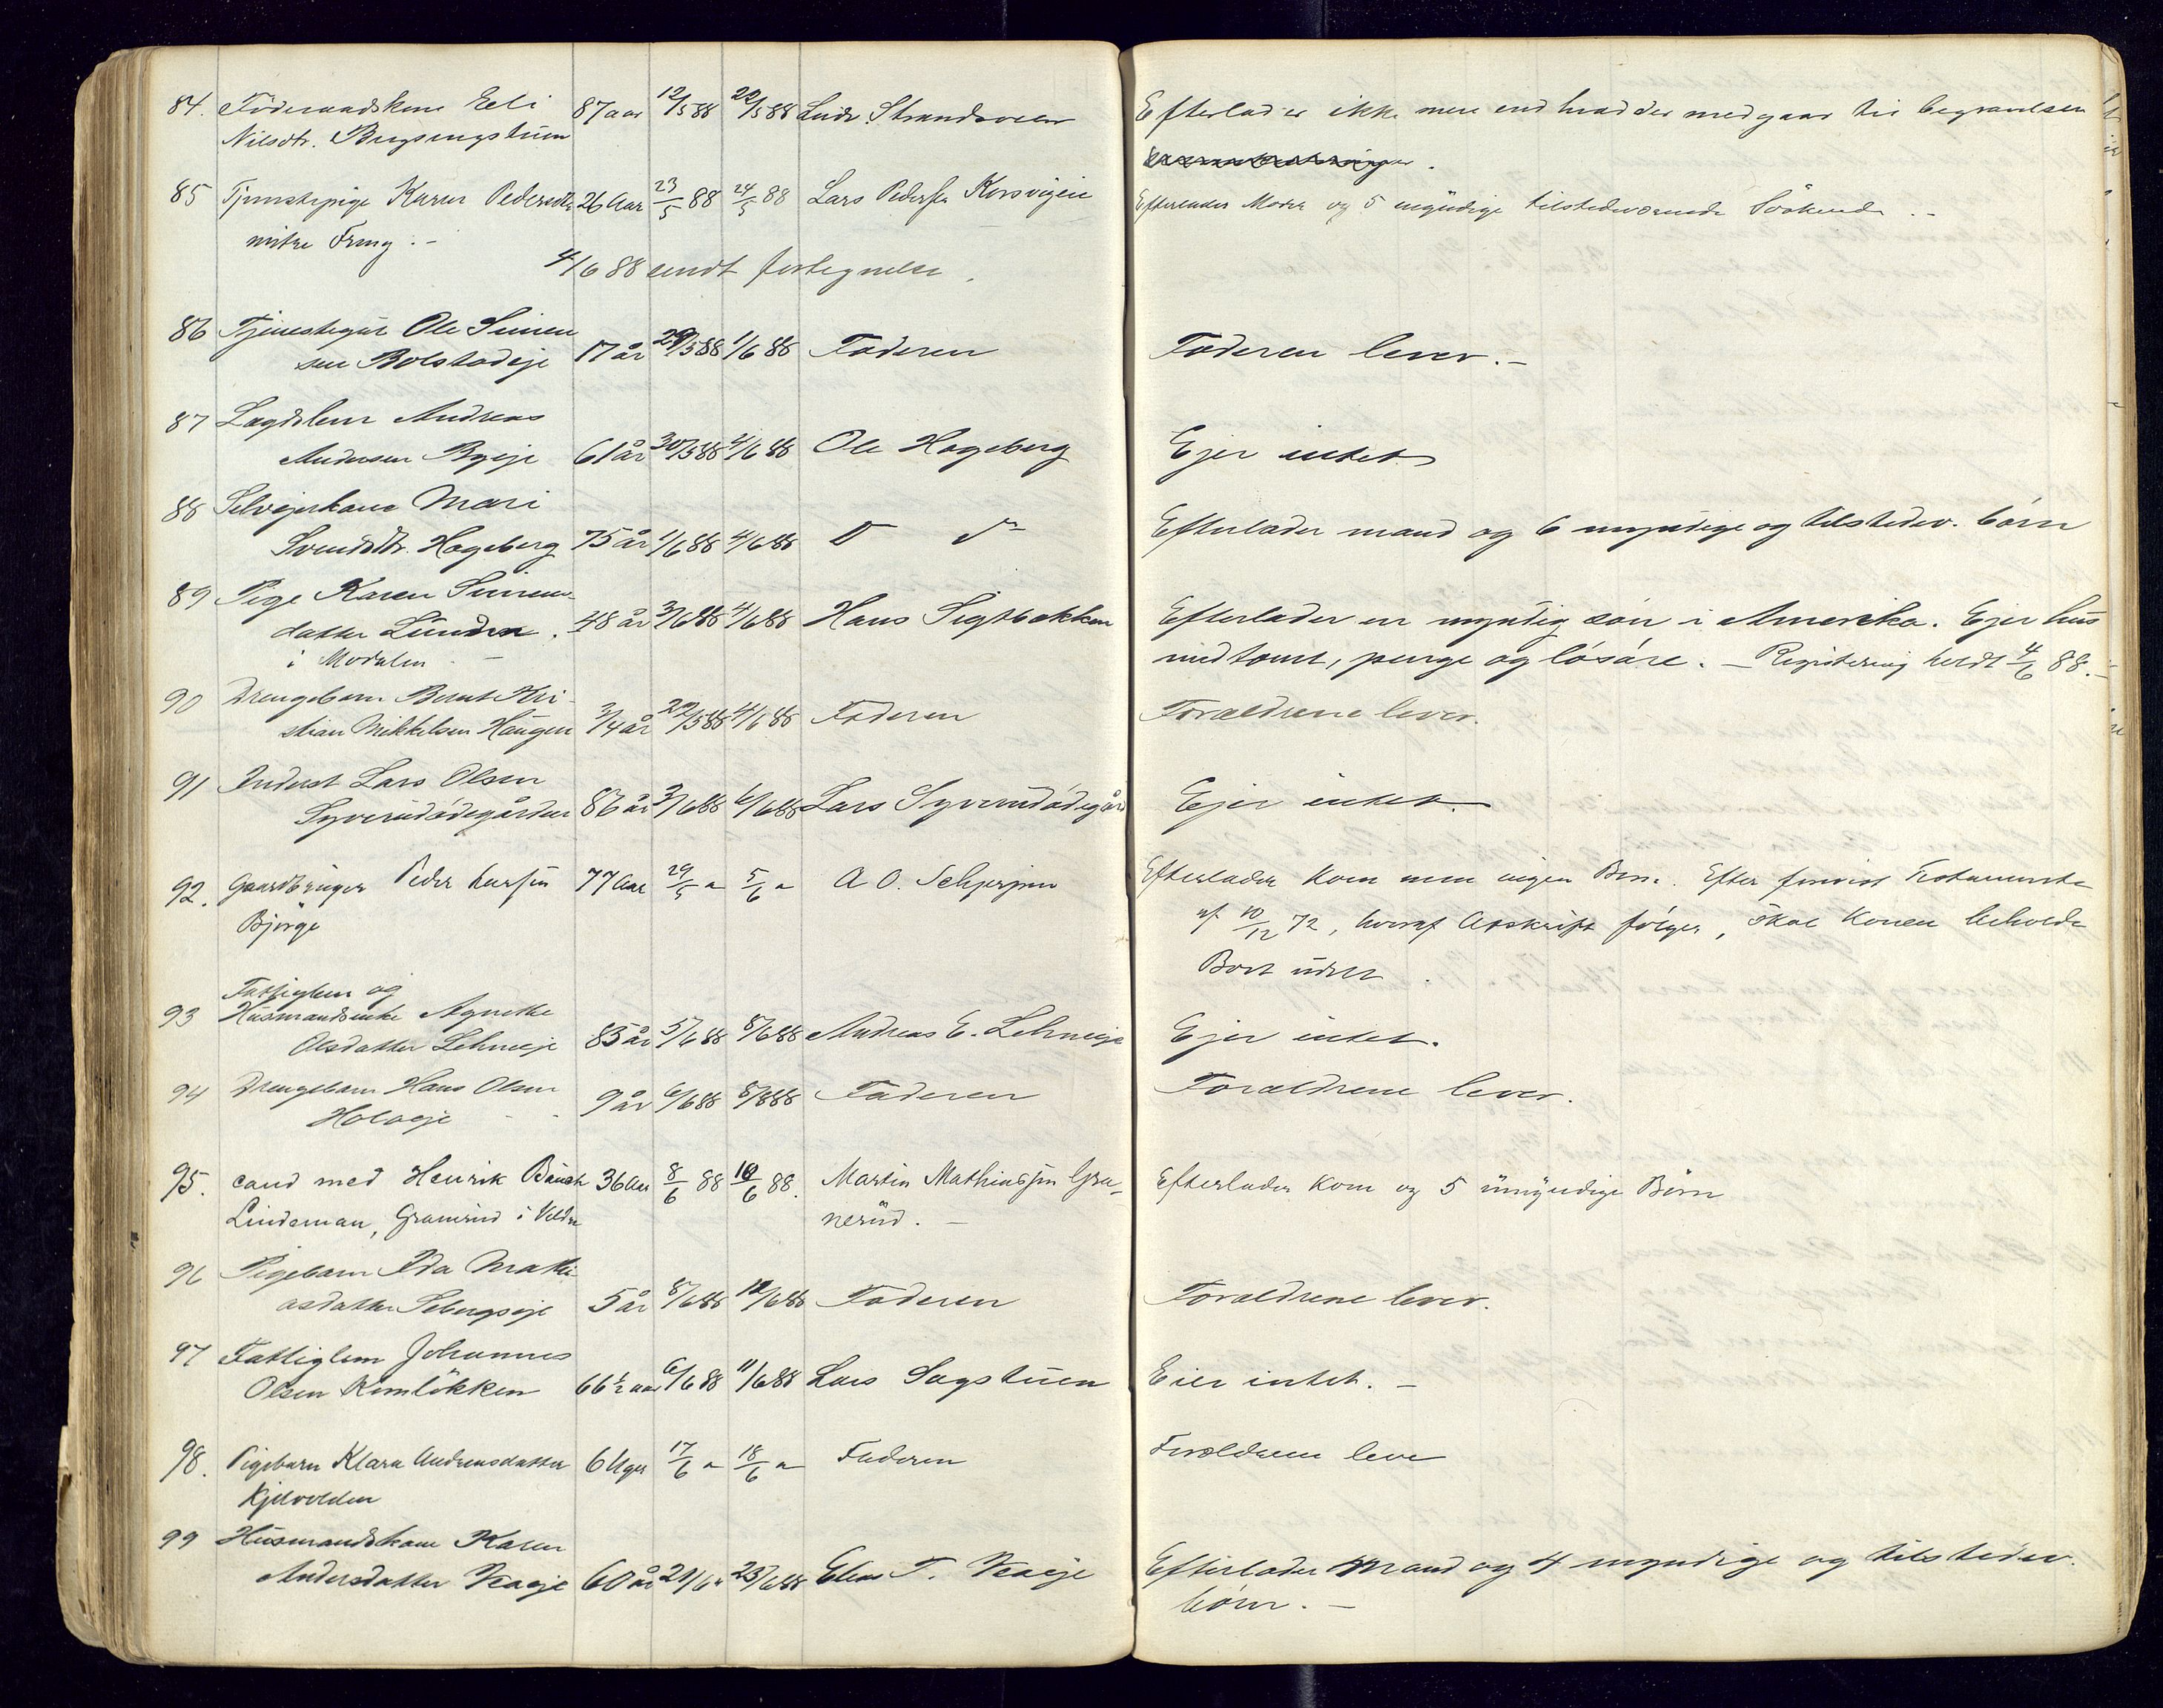 84. Föderaadskone Eli 87 aar 12/5 88 22/5 88 Ludv. Strandveen Efterlader ikke mere end hvad der medgaar til begravelsen
Nilsdtr.
85 Tjenstepige Karen Pedersdtr 26 Aar 23/5 88 24/5 88 Lars Pedersen Korsvigeie Efterlader Moder og 5 myndige tilstedeværende Söskende .-
4/6 88 sendt fortegnelse.
86 Tjenestegut Ole Simen
sen Bolstadeje 17 år 29/5 88 1/6 88 Faderen Faderen lever. -
87 Lægdslem Andreas
Andersen Byeje 61 år 30/5 88 4/6 88 Ole Hageberg Ejer intet
88 Selvejerkone Mari
Svendsdtr. Hageberg 75 år 1/6 88 4/6 88 D do Efterlader mand og 6 myndige og tilstedev. börn
89 Pige Karen Simens-
datter Lunden. 48 år 3/6 88 4/6 88 Hans Sigtbakken Efterlader en myndig sön i Amerika. Ejer hus
i Modalen - med tomt, penge og lösöre. - Registrering holdt 4/6 88. -
90 Drengebarn Bernt Kri-
stian Mikkelsen Haugen 3/4 år 29/5 88 4/6 88 Faderen Forældrene lever.
91 Inderst Lars Olsen
Syverudödegården 86 år 3/6 88 6/6 88 Lars Syverudödegård Ejer intet.
92. Gaardbruger Peder Larsen 77 Aar 29/5 " 5/6 " A O. Schjersjen Efterlader Kone men ingen Börn. Efter forevist Testamente
Bjørge af 10/12 72, hvoraf Afskrift fölger, skal Konen beholde
Boet udelt.
Fattiglem og
93 Husmandsenke Agnethe
Olsdatter Lehneeje 85 år 5/6 88 8/6 88 Andreas E. Lehneeje Ejer intet.
94 Drengebarn Hans Olsen
Holoeje 9 år 6/6 88 8/6 88 Faderen Forældrene lever.
95. cand med Henrik Bauck 36 Aar 8/6 88 10/6 88. Martin Mathiassen Gra- Efterlader Kone og 5 umyndige Börn
Lindeman, Granerud i Veldre nerud. -
96 Pigebarn Ida Mathi-
asdatter Sebergseje 5 år 8/6 88 10/6 88 Faderen Forældrene lever.
97 Fattiglem Johannes
Olsen Kornlökken 66 1/2 aar 6/6 88 11/6 88 Lars Sagstuen Eier intet. -
98. Pigebarn Klara Andreasdatter 6 Uger 17/6 " 18/6 " Faderen Forældrene leve
Kjelvolden
99 Husmandskone Karen
Andersdatter 60 år 21/6 " 23/6 88 Elias T. Efterlader Mand og 4 myndige og tilstedev.
börn. -